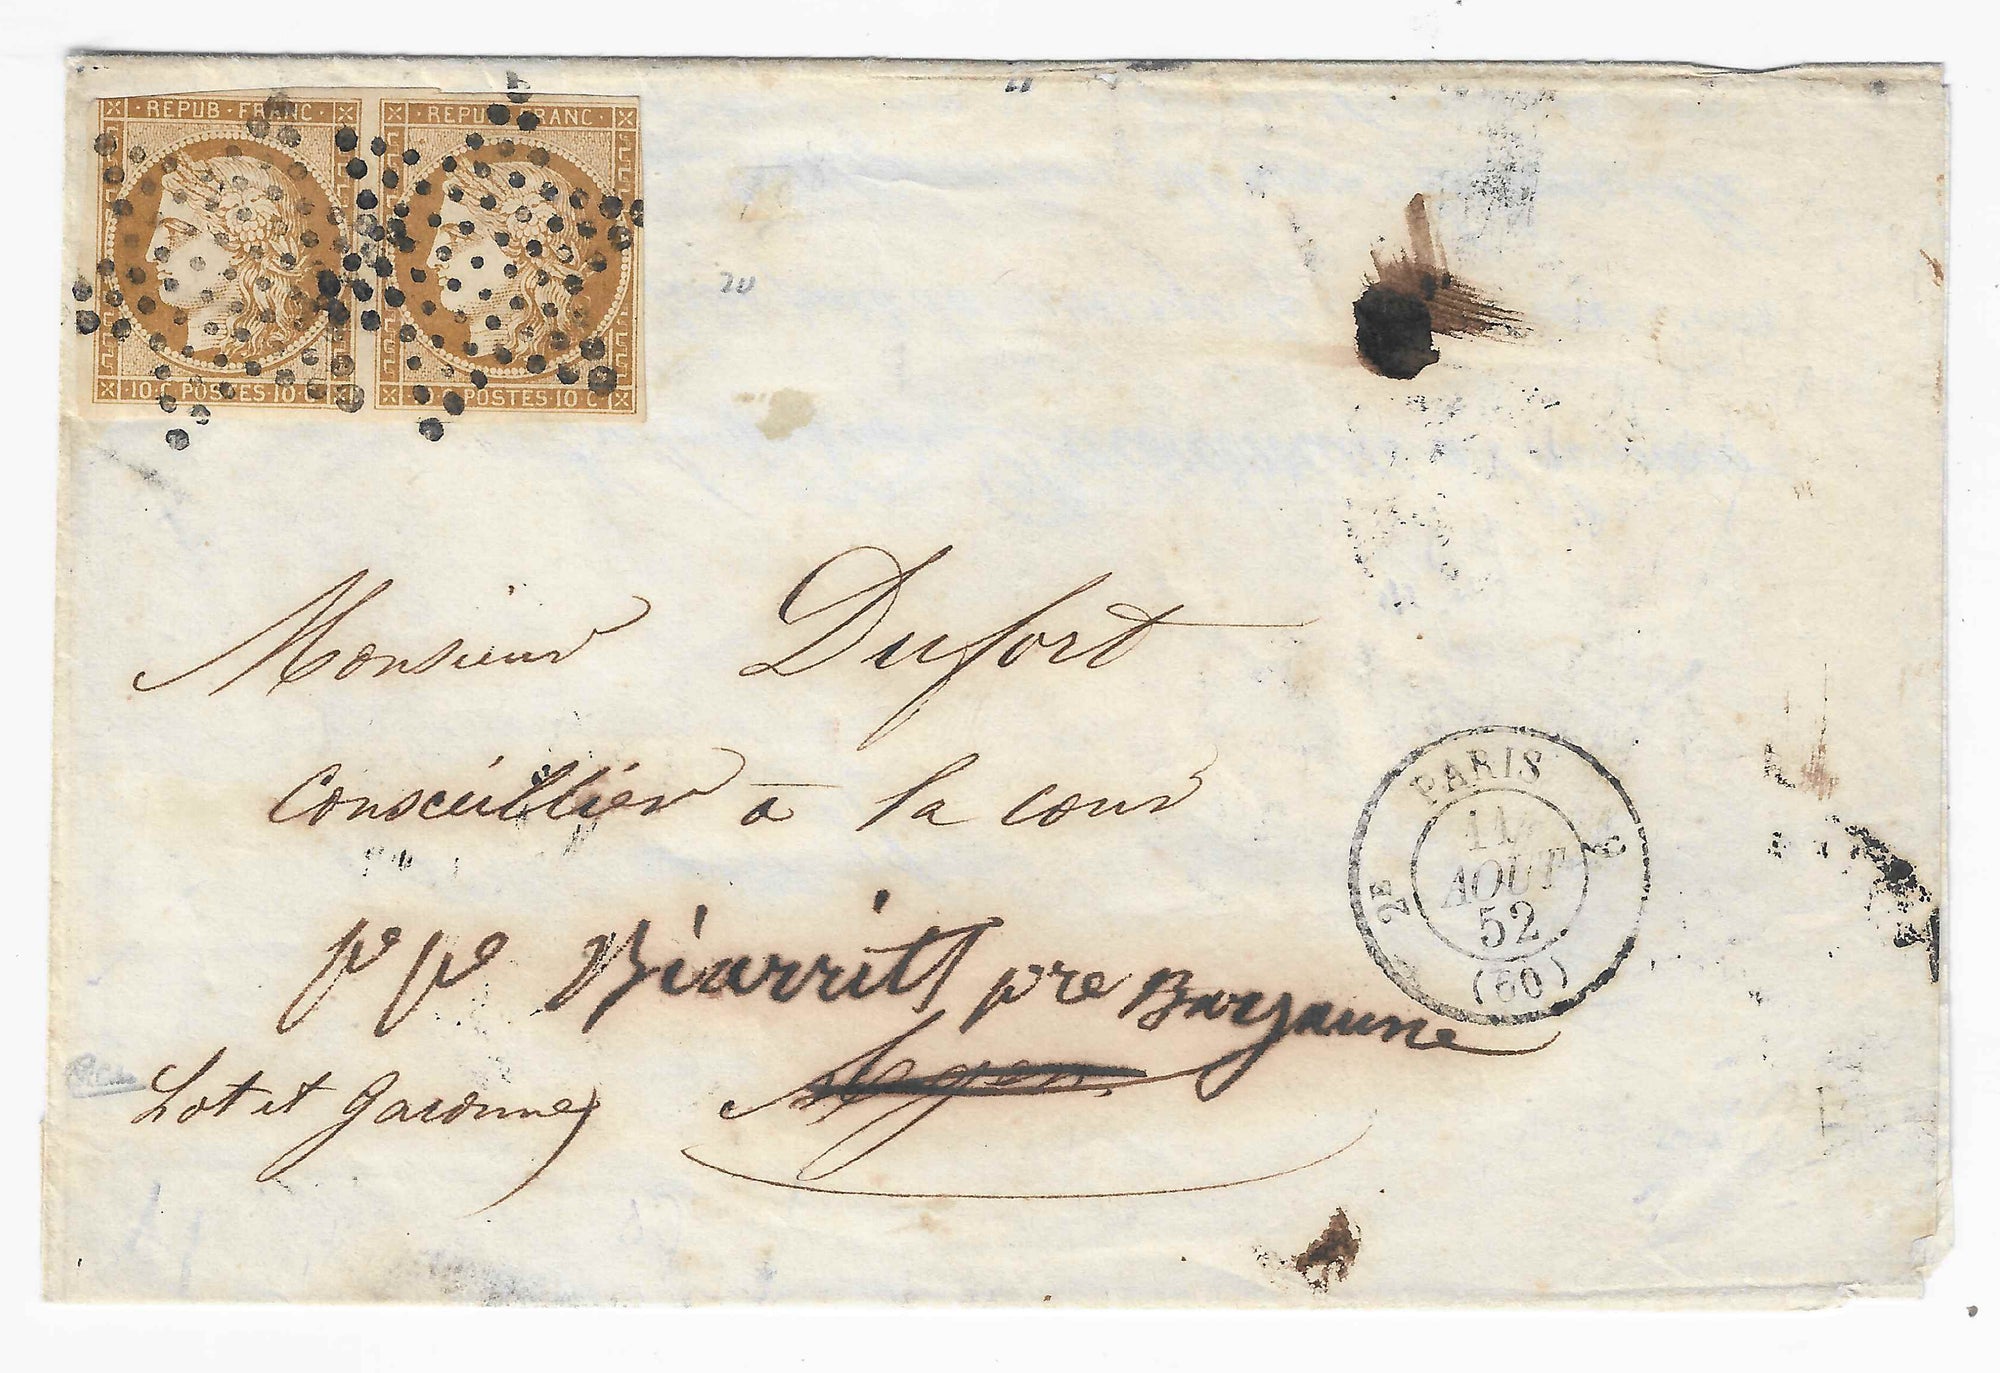 REPUB · FRANC · REPUB · FRANC ·
· 10 · C POSTES · 10 · C POSTES · 10 C
Monsieur Dufort
Conseillier à la cour
PARIS
2E
11
AOUT
52
(60)
pe pe Biarritz pre Bayonne
Lot et Garonne Agen